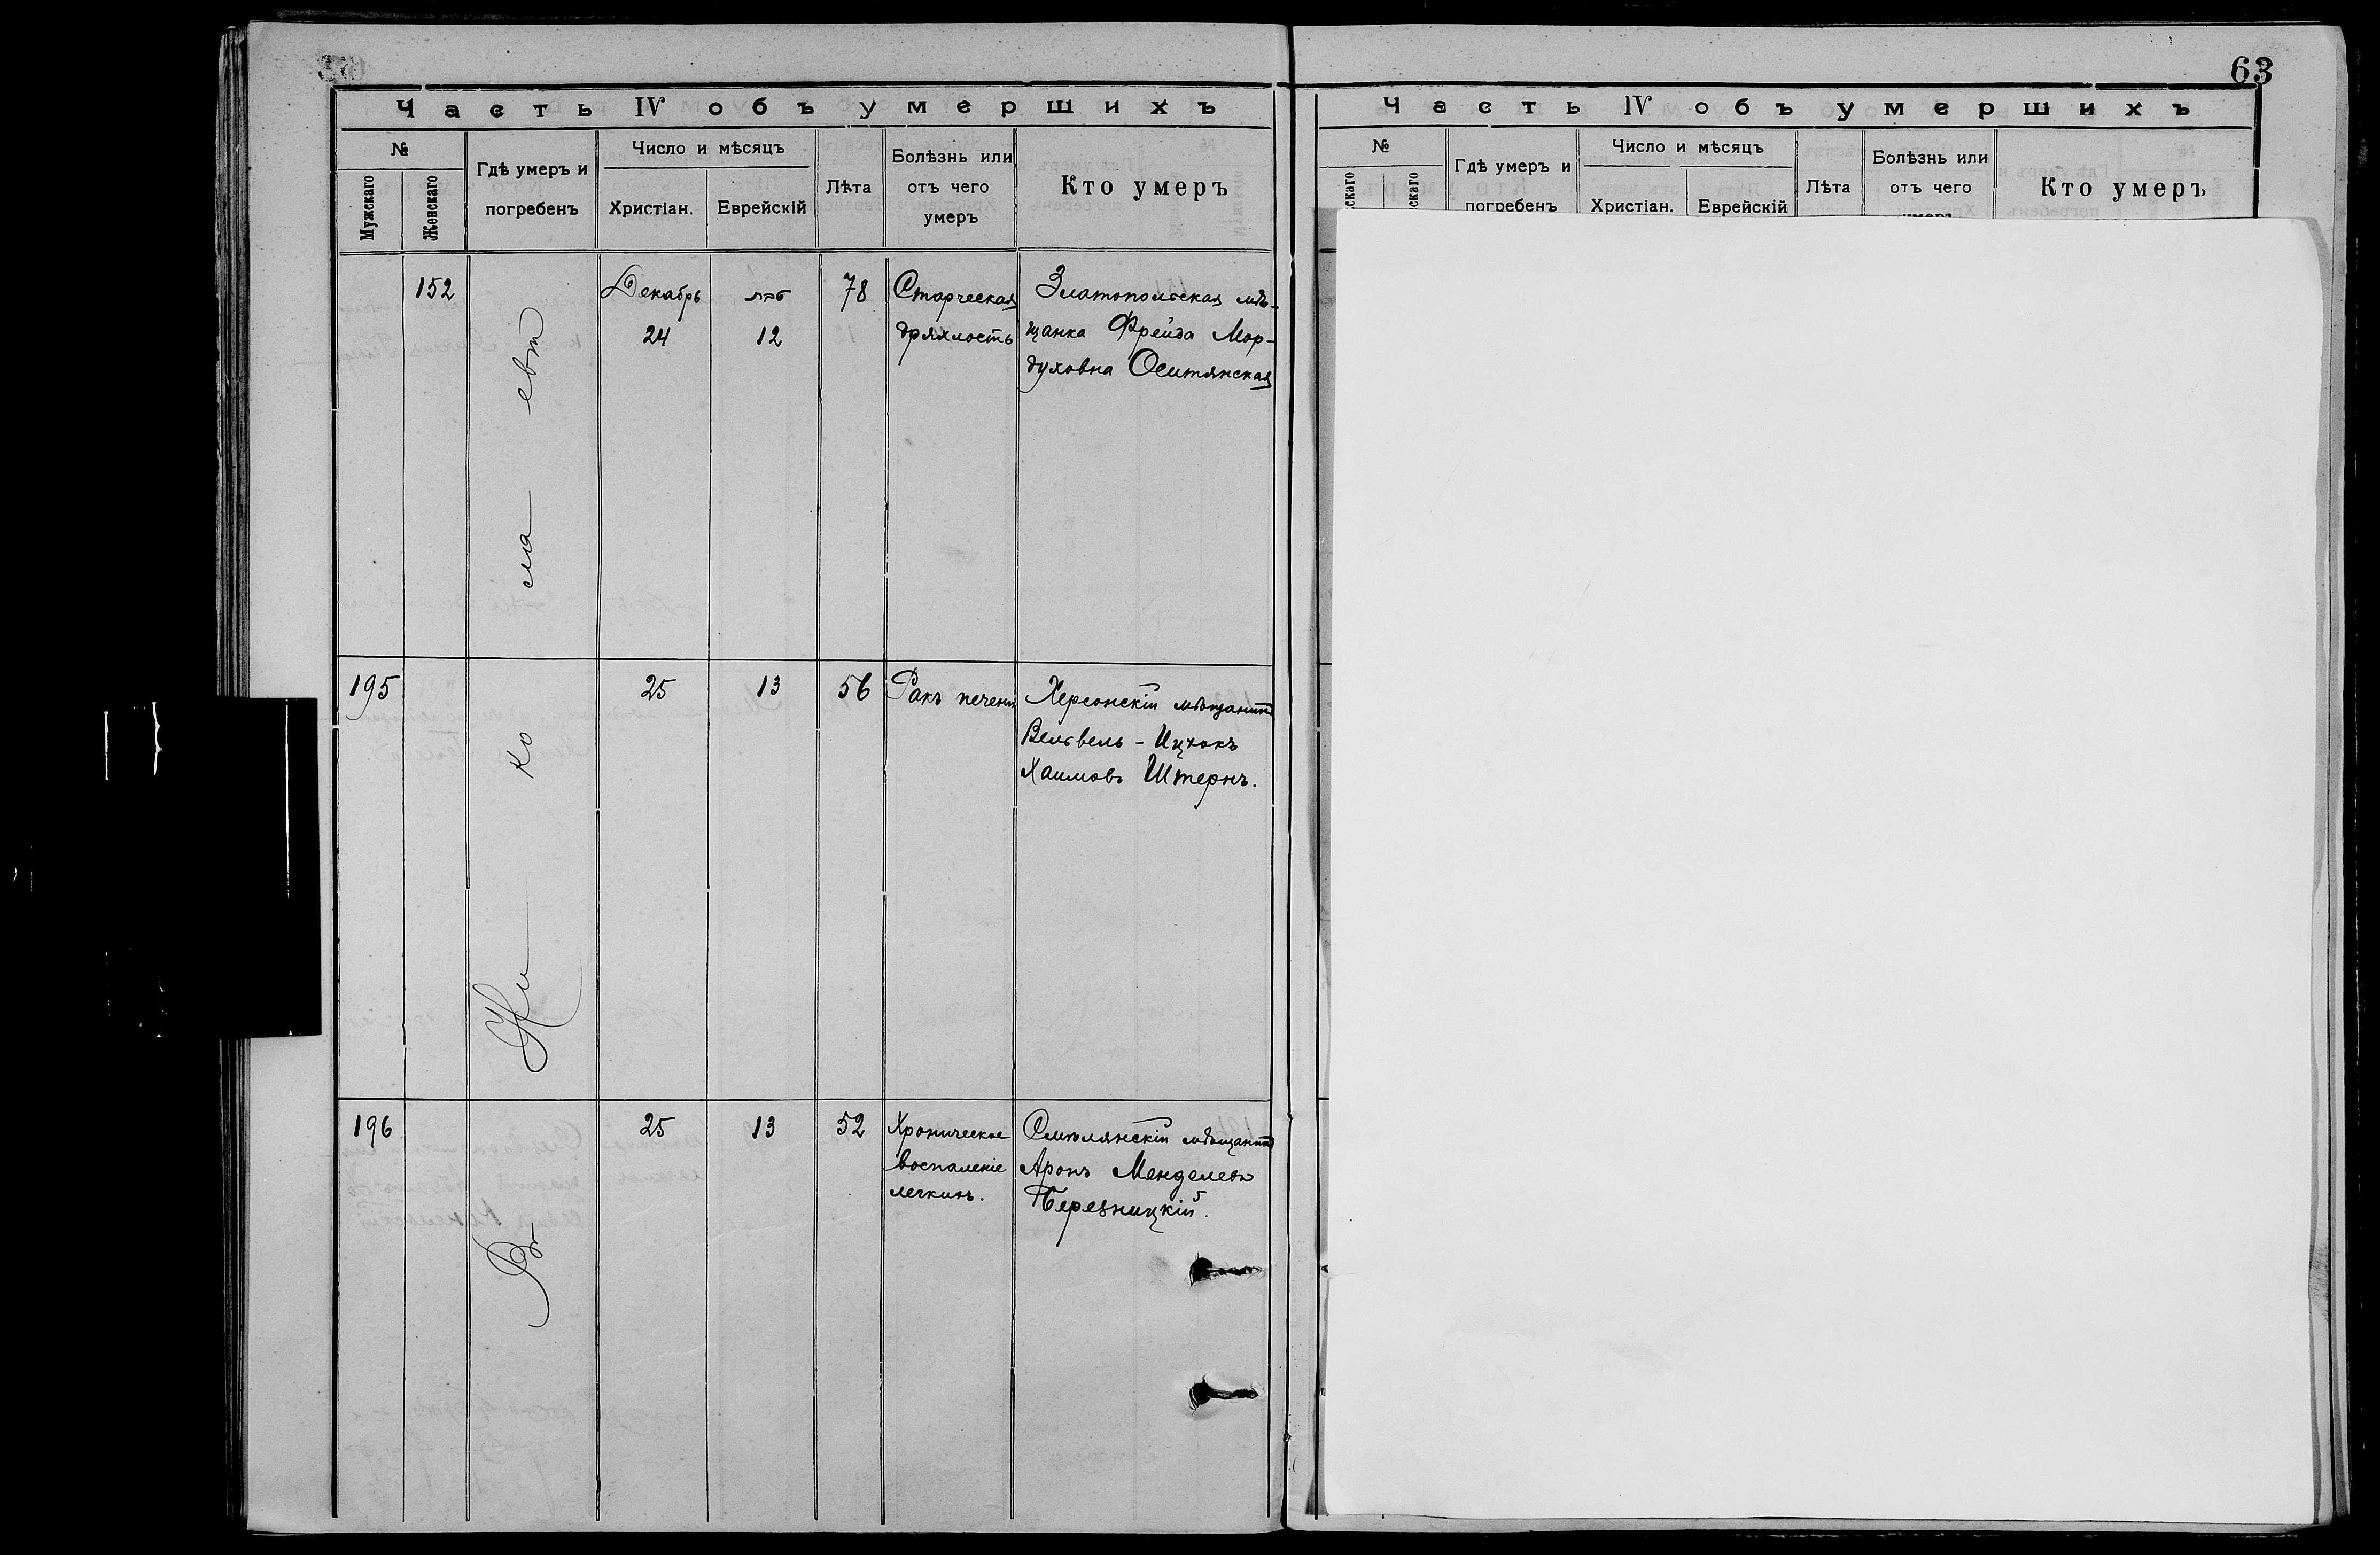 63
Часть IV объ умершихъ
№
Мужскаго
Женскаго
Гдѣ умеръ и
погребенъ
Число и мѣсяцъ
Христіан.
Еврейскій
Лѣта
Болѣзнь или
отъ чего
умеръ
Кто умеръ
152
Декабрь
24
טבת
12
78
Старческая
дряхлость
Златопольская мѣ-
щанка Фрейда Мор-
духовна Оситянская
195
25
13
56
Ракъ печени
Херсонскій мѣщанинъ
Вельвель-Ицхокъ
Хаимовъ Штернъ.
196
25
13
52
Хроническое
воспаленіе
легкихъ.
Смѣлянскій мѣщанинъ
Аронъ Менделевъ
Березницкій.
Въ Николаевѣ
Часть IV объ умершихъ
№
скаго
скаго
Гдѣ умеръ и
погребенъ
Число и мѣсяцъ
Христіан.
Еврейскій
Лѣта
Болѣзнь или
отъ чего
умеръ
Кто умеръ